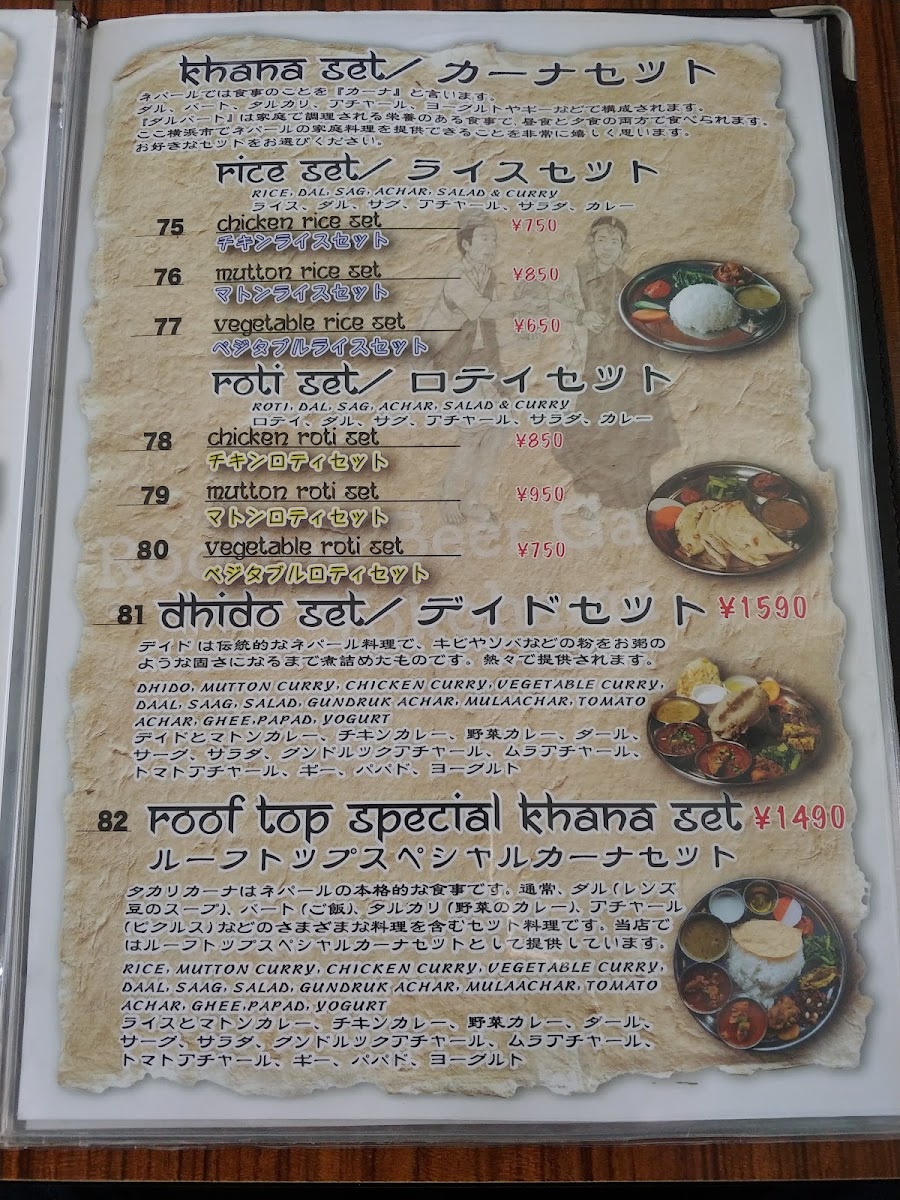 khana set/ カーナセット
ネパールでは食事のことを『カーナ』と言います。
ダル、バート、タルカリ、アチャール、ヨーグルトやギーなどで構成されます。
『ダルバート』は家庭で調理される栄養のある食事で、昼食と夕食の両方で食べられます。
ここ横浜市でネパールの家庭料理を提供できることを非常に嬉しく思います。
お好きなセットをお選びください。
rice set/ ライスセット
RICE, DAL, SAG, ACHAR, SALAD & CURRY
ライス、ダル、サグ、アチャール、サラダ、カレー
75 chicken rice set ¥750
チキンライスセット
76 mutton rice set ¥850
マトンライスセット
77 vegetable rice set ¥650
ベジタブルライスセット
roti set/ ロティセット
ROTI, DAL, SAG, ACHAR, SALAD & CURRY
ロティ、ダル、サグ、アチャール、サラダ、カレー
78 chicken roti set ¥850
チキンロティセット
79 mutton roti set ¥950
マトンロティセット
80 vegetable roti set ¥750
ベジタブルロティセット
81 dhido set/ デイドセット ¥1590
デイドは伝統的なネパール料理で、キビやソバなどの粉をお粥の
ような固さになるまで煮詰めたものです。熱々で提供されます。
DHIDO, MUTTON CURRY, CHICKEN CURRY, VEGETABLE CURRY,
DAAL, SAAG, SALAD, GUNDRUK ACHAR, MULAACHAR, TOMATO
ACHAR, GHEE,PAPAD, YOGURT
デイドとマトンカレー、チキンカレー、野菜カレー、ダール、
サーグ、サラダ、グンドルックアチャール、ムラアチャール、
トマトアチャール、ギー、パパド、ヨーグルト
82 roof top special khana set ¥1490
ルーフトップスペシャルカーナセット
タカリカーナはネパールの本格的な食事です。通常、ダル(レンズ
豆のスープ)、バート(ご飯)、タルカリ(野菜のカレー)、アチャール
(ピクルス)などのさまざまな料理を含むセット料理です。当店で
はルーフトップスペシャルカーナセットとして提供しています。
RICE, MUTTON CURRY, CHICKEN CURRY, VEGETABLE CURRY,
DAAL, SAAG, SALAD, GUNDRUK ACHAR, MULAACHAR, TOMATO
ACHAR, GHEE,PAPAD, YOGURT
ライスとマトンカレー、チキンカレー、野菜カレー、ダール、
サーグ、サラダ、グンドルックアチャール、ムラアチャール、
トマトアチャール、ギー、パパド、ヨーグルト